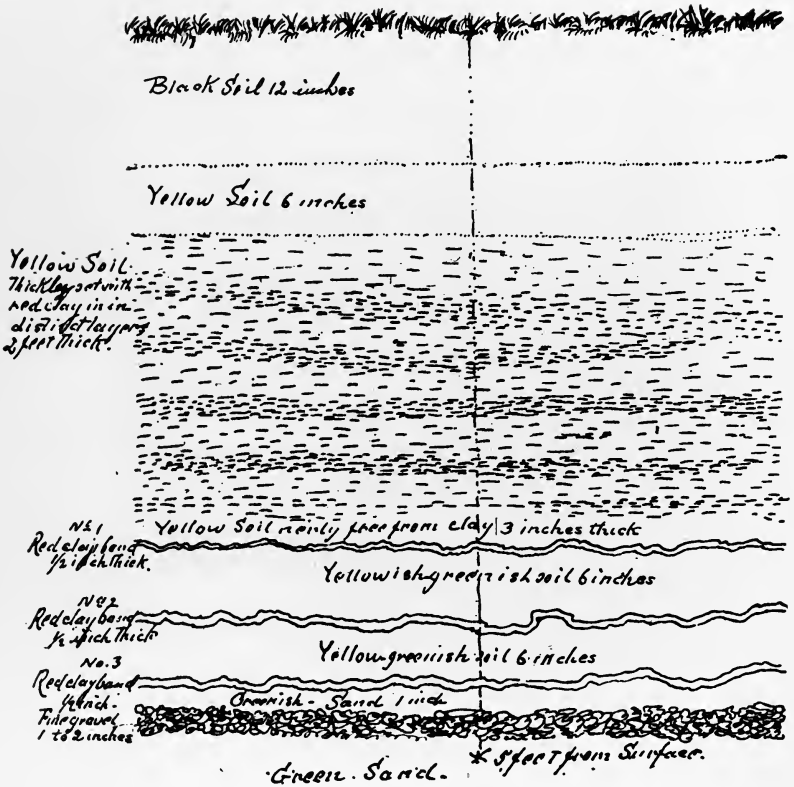 Black Soil 12 inches
Yellow Soil 6 inches
Yellow Soil
thickley set with
red clay in in-
distinct layers
2 feet thick.
Yellow Soil nearly free from clay 3 inches thick
No 1
Red clay band
1/2 inch thick.
Yellowish greenish soil 6 inches
No 2
Red clay band
1/2 inch thick
Yellow greenish soil 6 inches
No. 3
Red clay band
1/2 inch.
Greenish - Sand 1 inch
Fine gravel
1 to 2 inches
* 5 feet from Surface.
Green. Sand.